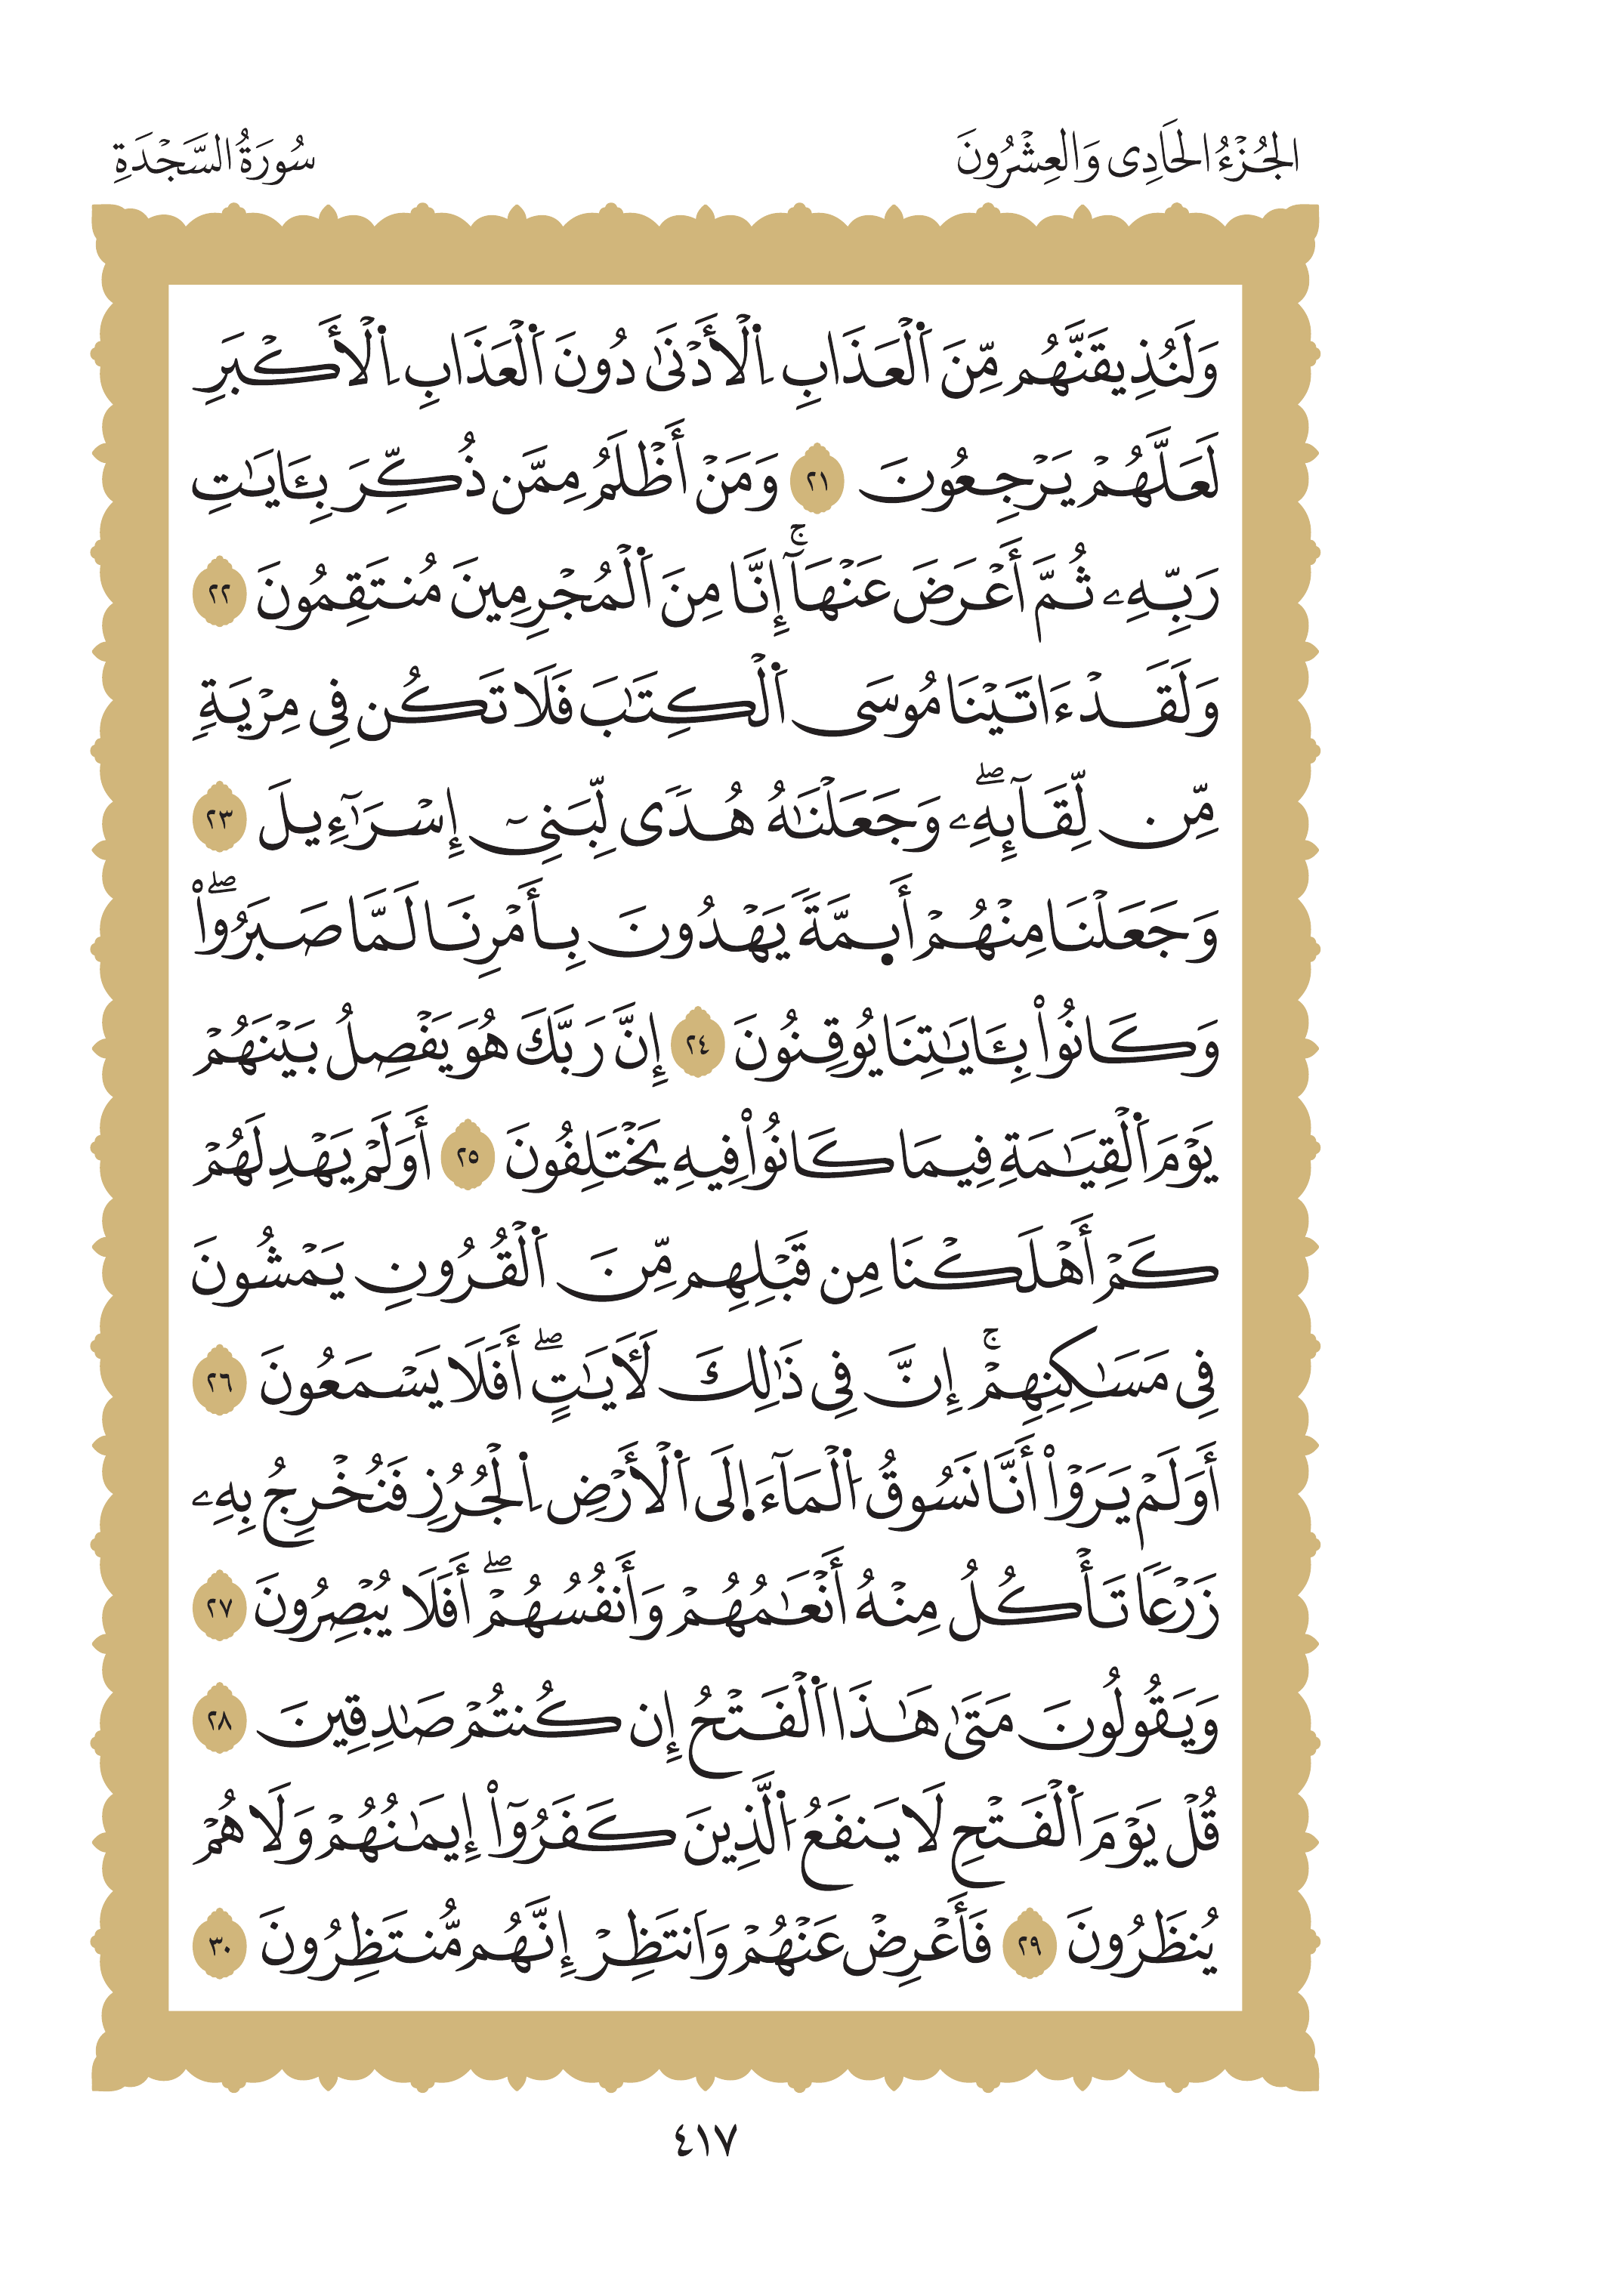 الجُزْءُ الحَادِى وَالعِشْرُونَ
سُورَةُ السَّجْدَةِ
وَلَنُذِيقَنَّهُم مِّنَ اَ۬لْعَذَابِ اِ۬لْأَدْنَىٰ دُونَ اَ۬لْعَذَابِ اِ۬لْأَكْبَرِ
لَعَلَّهُمْ يَرْجِعُونَ ٢١ وَمَنْ أَظْلَمُ مِمَّن ذُكِّرَ بِـَٔايَٰتِ
رَبِّهِۦ ثُمَّ أَعْرَضَ عَنْهَآۚ إِنَّا مِنَ اَ۬لْمُجْرِمِينَ مُنتَقِمُونَ ٢٢
وَلَقَدْ ءَاتَيْنَا مُوسَى اَ۬لْكِتَٰبَ فَلَا تَكُن فِى مِرْيَةٖ
مِّن لِّقَآئِهِۦۖ وَجَعَلْنَٰهُ هُدٗى لِّبَنِىٓ إِسْرَٰٓءِيلَ ٢٣
وَجَعَلْنَا مِنْهُمْ أَى۪مَّةٗ يَهْدُونَ بِأَمْرِنَا لَمَّا صَبَرُواْۖ
وَكَانُواْ بِـَٔايَٰتِنَا يُوقِنُونَ ٢٤ إِنَّ رَبَّكَ هُوَ يَفْصِلُ بَيْنَهُمْ
يَوْمَ اَ۬لْقِيَٰمَةِ فِيمَا كَانُواْ فِيهِ يَخْتَلِفُونَ ٢٥ أَوَلَمْ يَهْدِ لَهُمْ
كَمْ أَهْلَكْنَا مِن قَبْلِهِم مِّنَ اَ۬لْقُرُونِ يَمْشُونَ
فِى مَسَٰكِنِهِمْۚ إِنَّ فِى ذَٰلِكَ لَأٓيَٰتٍۖ أَفَلَا يَسْمَعُونَ ٢٦
أَوَلَمْ يَرَوْاْ أَنَّا نَسُوقُ اُ۬لْمَآءَ ا۪لَى اَ۬لْأَرْضِ اِ۬لْجُرُزِ فَنُخْرِجُ بِهِۦ
زَرْعٗا تَأْكُلُ مِنْهُ أَنْعَٰمُهُمْ وَأَنفُسُهُمْۖ أَفَلَا يُبْصِرُونَ ٢٧
وَيَقُولُونَ مَتَىٰ هَٰذَا اَ۬لْفَتْحُ إِن كُنتُمْ صَٰدِقِينَ ٢٨
قُلْ يَوْمَ اَ۬لْفَتْحِ لَا يَنفَعُ اُ۬لَّذِينَ كَفَرُوٓاْ إِيمَٰنُهُمْ وَلَا هُمْ
يُنظَرُونَ ٢٩ فَأَعْرِضْ عَنْهُمْ وَانتَظِرْ إِنَّهُم مُّنتَظِرُونَ ٣٠
٤١٧